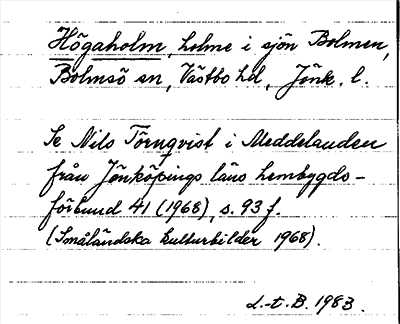 Högaholm, holme i sjön Bolmen,
Bolmsö sn, Västbo hd, Jönk. l.
Se Nils Törnqvist i Meddelanden
från Jönköpings läns hembygds-
förbund 41 (1968), s. 93 f.
(Småländska kulturbilder 1968).
L.-t. B. 1983.